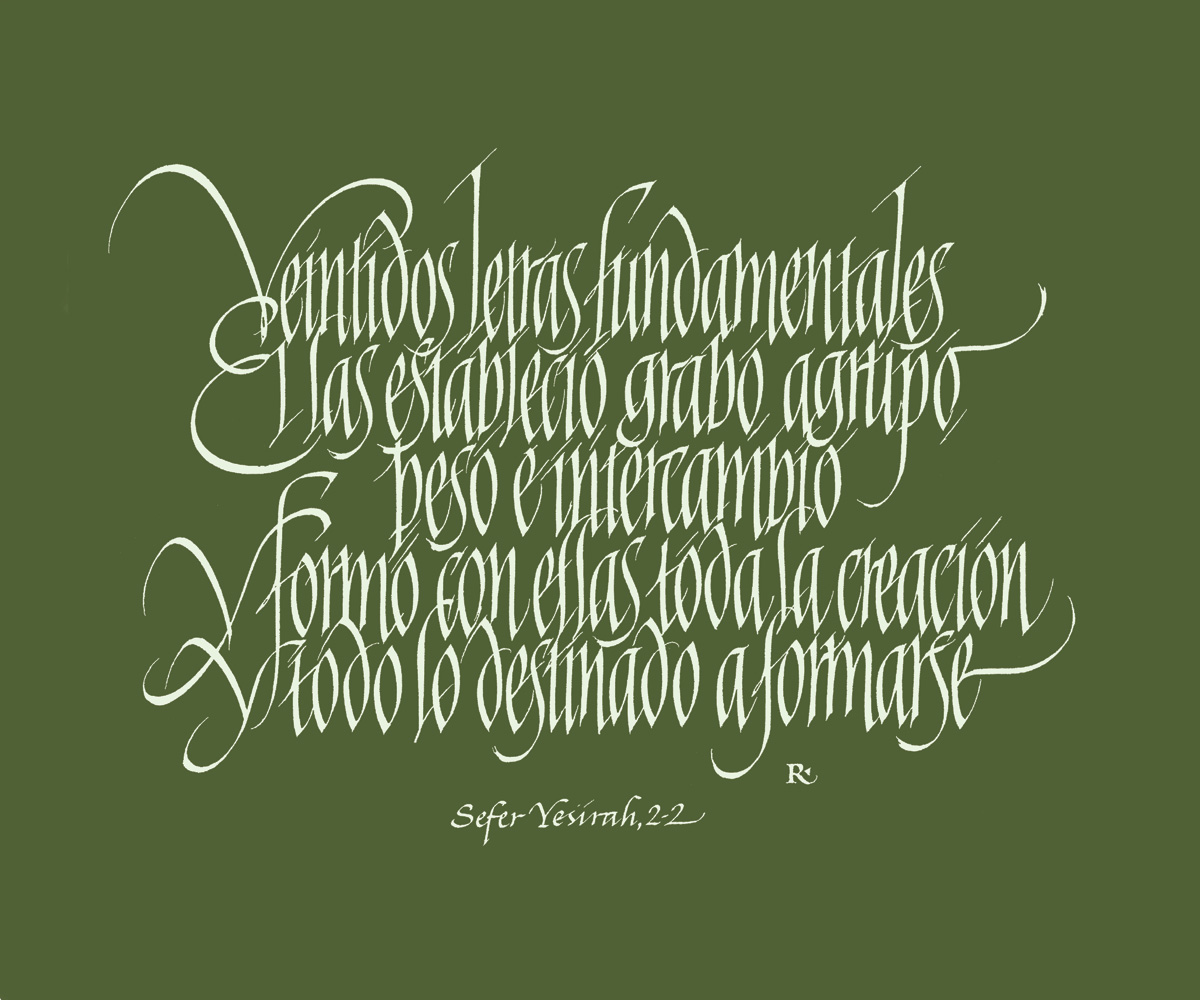 Veintidos letras fundamentales
El las estableció grabó agrupó
peso e intercambió
Y formó con ellas toda la creación
Y todo lo destinado a formarse
R
Sefer Yesirah, 2-2